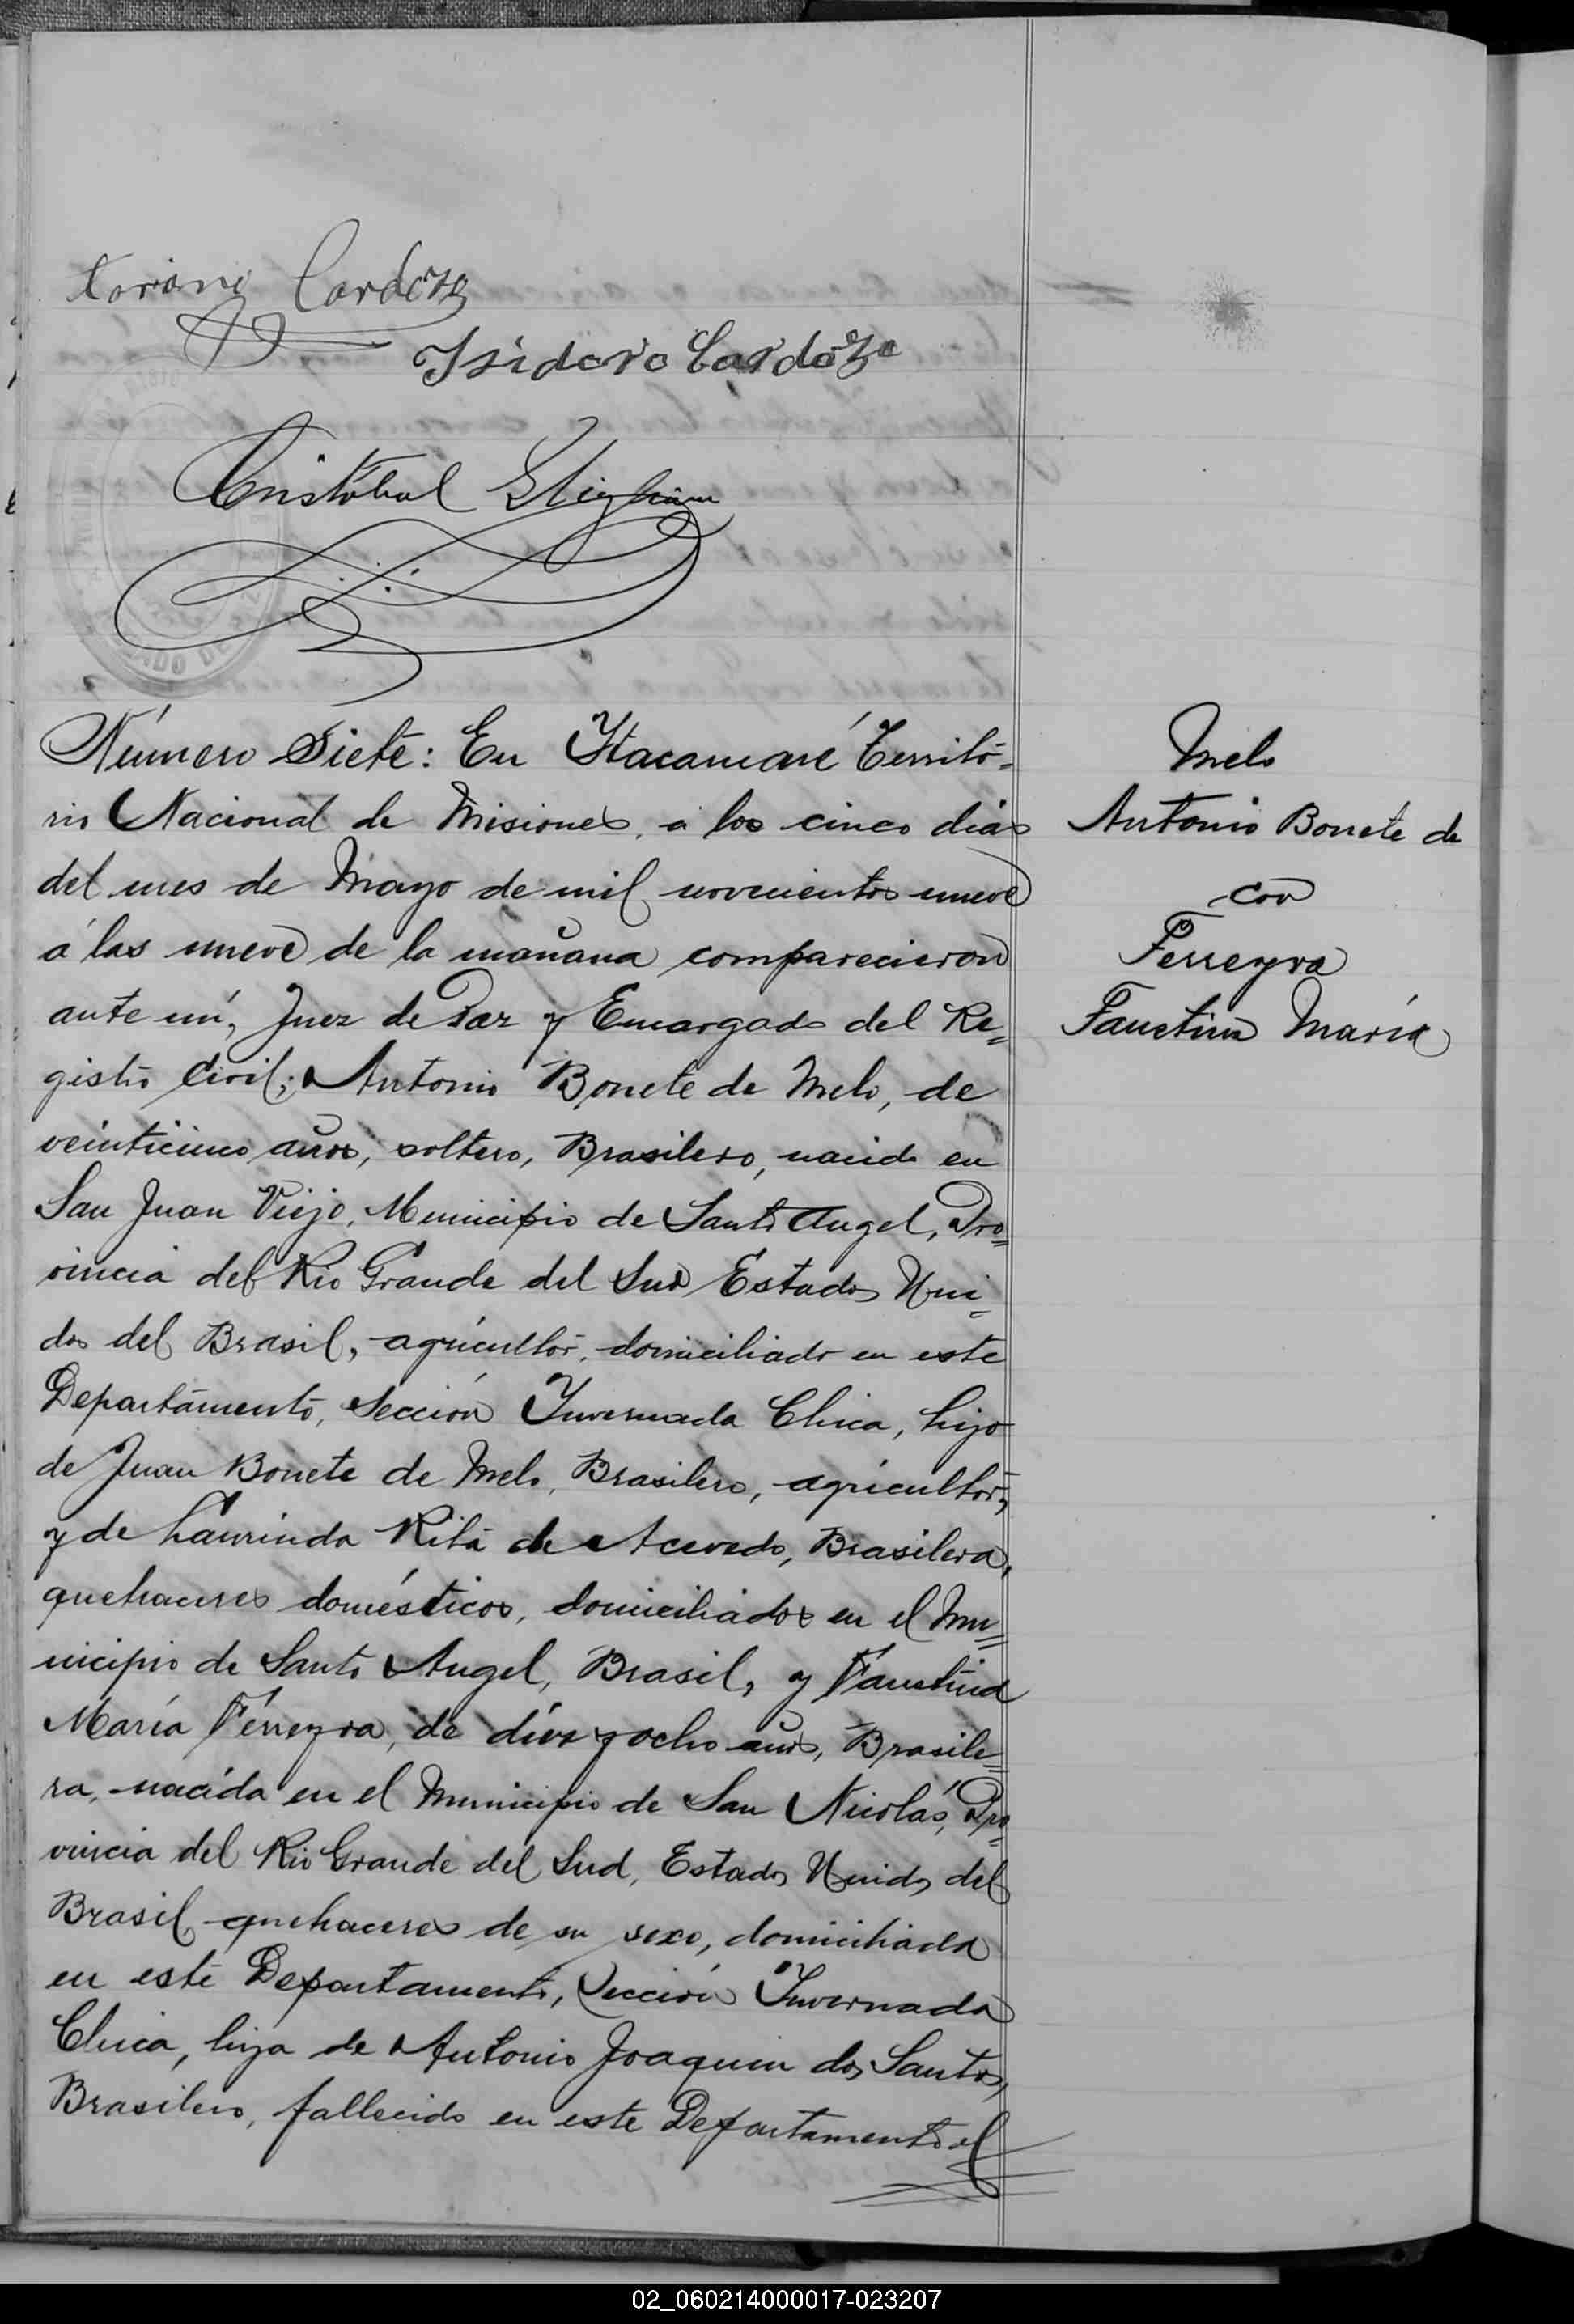 Cardozo
Isidoro Cardozo
Cristóbal
Número Siete: En Itacaruaré Territo-
rio Nacional de Misiones, a los cinco dias
del mes de Mayo de mil novecientos nueve
á las nueve de la mañana comparecieron
ante mí, Juez de Paz y Encargado del Re=
gistro Civil; Antonio Bonete de Melo, de
veinticinco años, soltero, Brasilero, nacido en
San Juan Viejo, Municipio de Santo Angel, Pro=
vincia del Rio Grande del Sud Estados Uni=
dos del Brasil, agricultor, domiciliado en este
Departamento, Sección Invernada Chica, hijo
de Juan Bonete de Melo, Brasilero, agricultor,
y de Laurinda Rita de Acevedo, Brasilera,
quehaceres domésticos, domiciliados en el Mu=
nicipio de Santo Angel, Brasil, y Faustina
María Ferreyra, de diez y ocho años, Brasile=
ra, nacida en el Municipio de San Nicolás, Pro=
vincia del Rio Grande del Sud, Estados Unidos del
Brasil, quehaceres de su sexo, domiciliada
en este Departamento, Sección Invernada
Chica, hija de Antonio Joaquin dos Santos,
Brasilero, fallecido en este Departamento el
Melo
Antonio Bonete de
con
Ferreyra
Faustina María
02_060214000017-023207